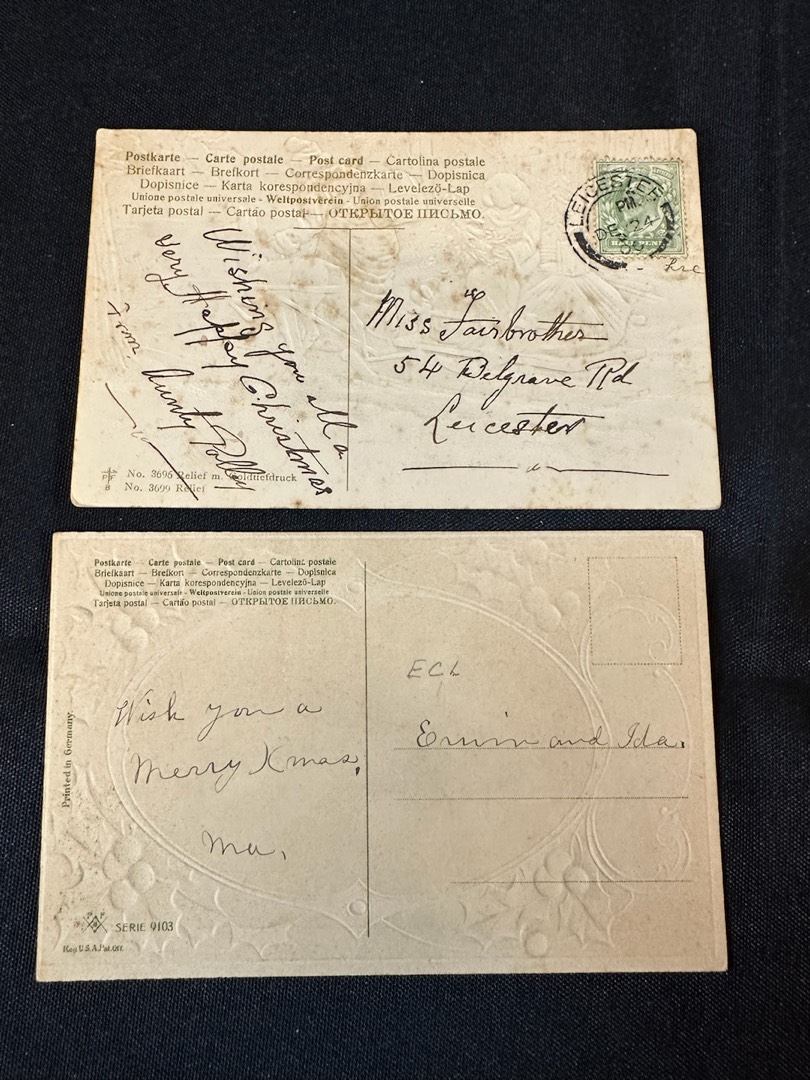 Postkarte — Carte postale — Post card — Cartolina postale
Briefkaart — Brefkort — Correspondenzkarte — Dopisnica
Dopisnice — Karta korespondencyjna — Levelező-Lap
Unione postale universale - Weltpostverein - Union postale universelle
Tarjeta postal — Cartão postal — ОТКРЫТОЕ ПИСЬМО.
LEICESTER
PM
DE 24
HALF PENNY
Wishing you all a
very Happy Christmas
from Aunty Polley
Miss Fairbrother
54 Belgrave Rd
Leicester
No. 3696 Relief m. Goldtiefdruck
No. 3699 Relief
Postkarte — Carte postale — Post card — Cartolina postale
Briefkaart — Brefkort — Correspondenzkarte — Dopisnica
Dopisnice — Karta korespondencyjna — Levelező-Lap
Unione postale universale - Weltpostverein - Union postale universelle
Tarjeta postal — Cartão postal — ОТКРЫТОЕ ПИСЬМО.
Printed in Germany.
Wish you a
Merry Xmas,
Ma.
ECL
Erwin and Ida.
SERIE 9103
Reg. U.S.A. Pat. Off.